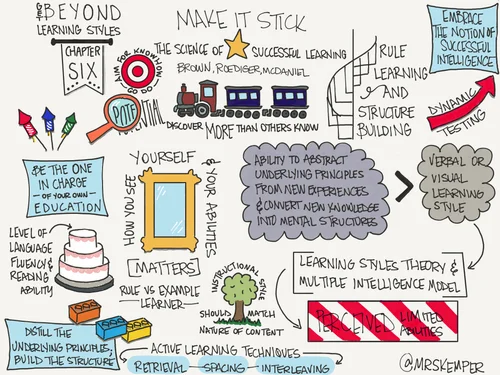 GET BEYOND
LEARNING STYLES
CHAPTER
SIX
AIM FOR KNOWHOW
MAKE IT STICK
THE SCIENCE OF SUCCESSFUL LEARNING
BROWN, ROEDIGER, MCDANIEL
DISCOVER MORE THAN OTHERS KNOW
POTENTIAL
RULE
LEARNING
AND
STRUCTURE
BUILDING
EMBRACE
THE NOTION OF
SUCCESSFUL
INTELLIGENCE
DYNAMIC
TESTING
BE THE ONE
IN CHARGE
OF YOUR OWN
EDUCATION
HOW YOU SEE
YOURSELF
& YOUR ABILITIES
[MATTERS]
RULE VS EXAMPLE
LEARNER
ABILITY TO ABSTRACT
UNDERLYING PRINCIPLES
FROM NEW EXPERIENCES
& CONVERT NEW KNOWLEDGE
INTO MENTAL STRUCTURES
>
VERBAL OR
VISUAL
LEARNING
STYLE
LEVEL OF
LANGUAGE
FLUENCY &
READING
ABILITY
INSTRUCTIONAL STYLE
SHOULD MATCH
NATURE OF CONTENT
LEARNING STYLES THEORY &
MULTIPLE INTELLIGENCE MODEL
PERCEIVED LIMITED
ABILITIES
DISTILL THE
UNDERLYING PRINCIPLES,
BUILD THE STRUCTURE
ACTIVE LEARNING TECHNIQUES
RETRIEVAL SPACING INTERLEAVING
@MRSKEMPER